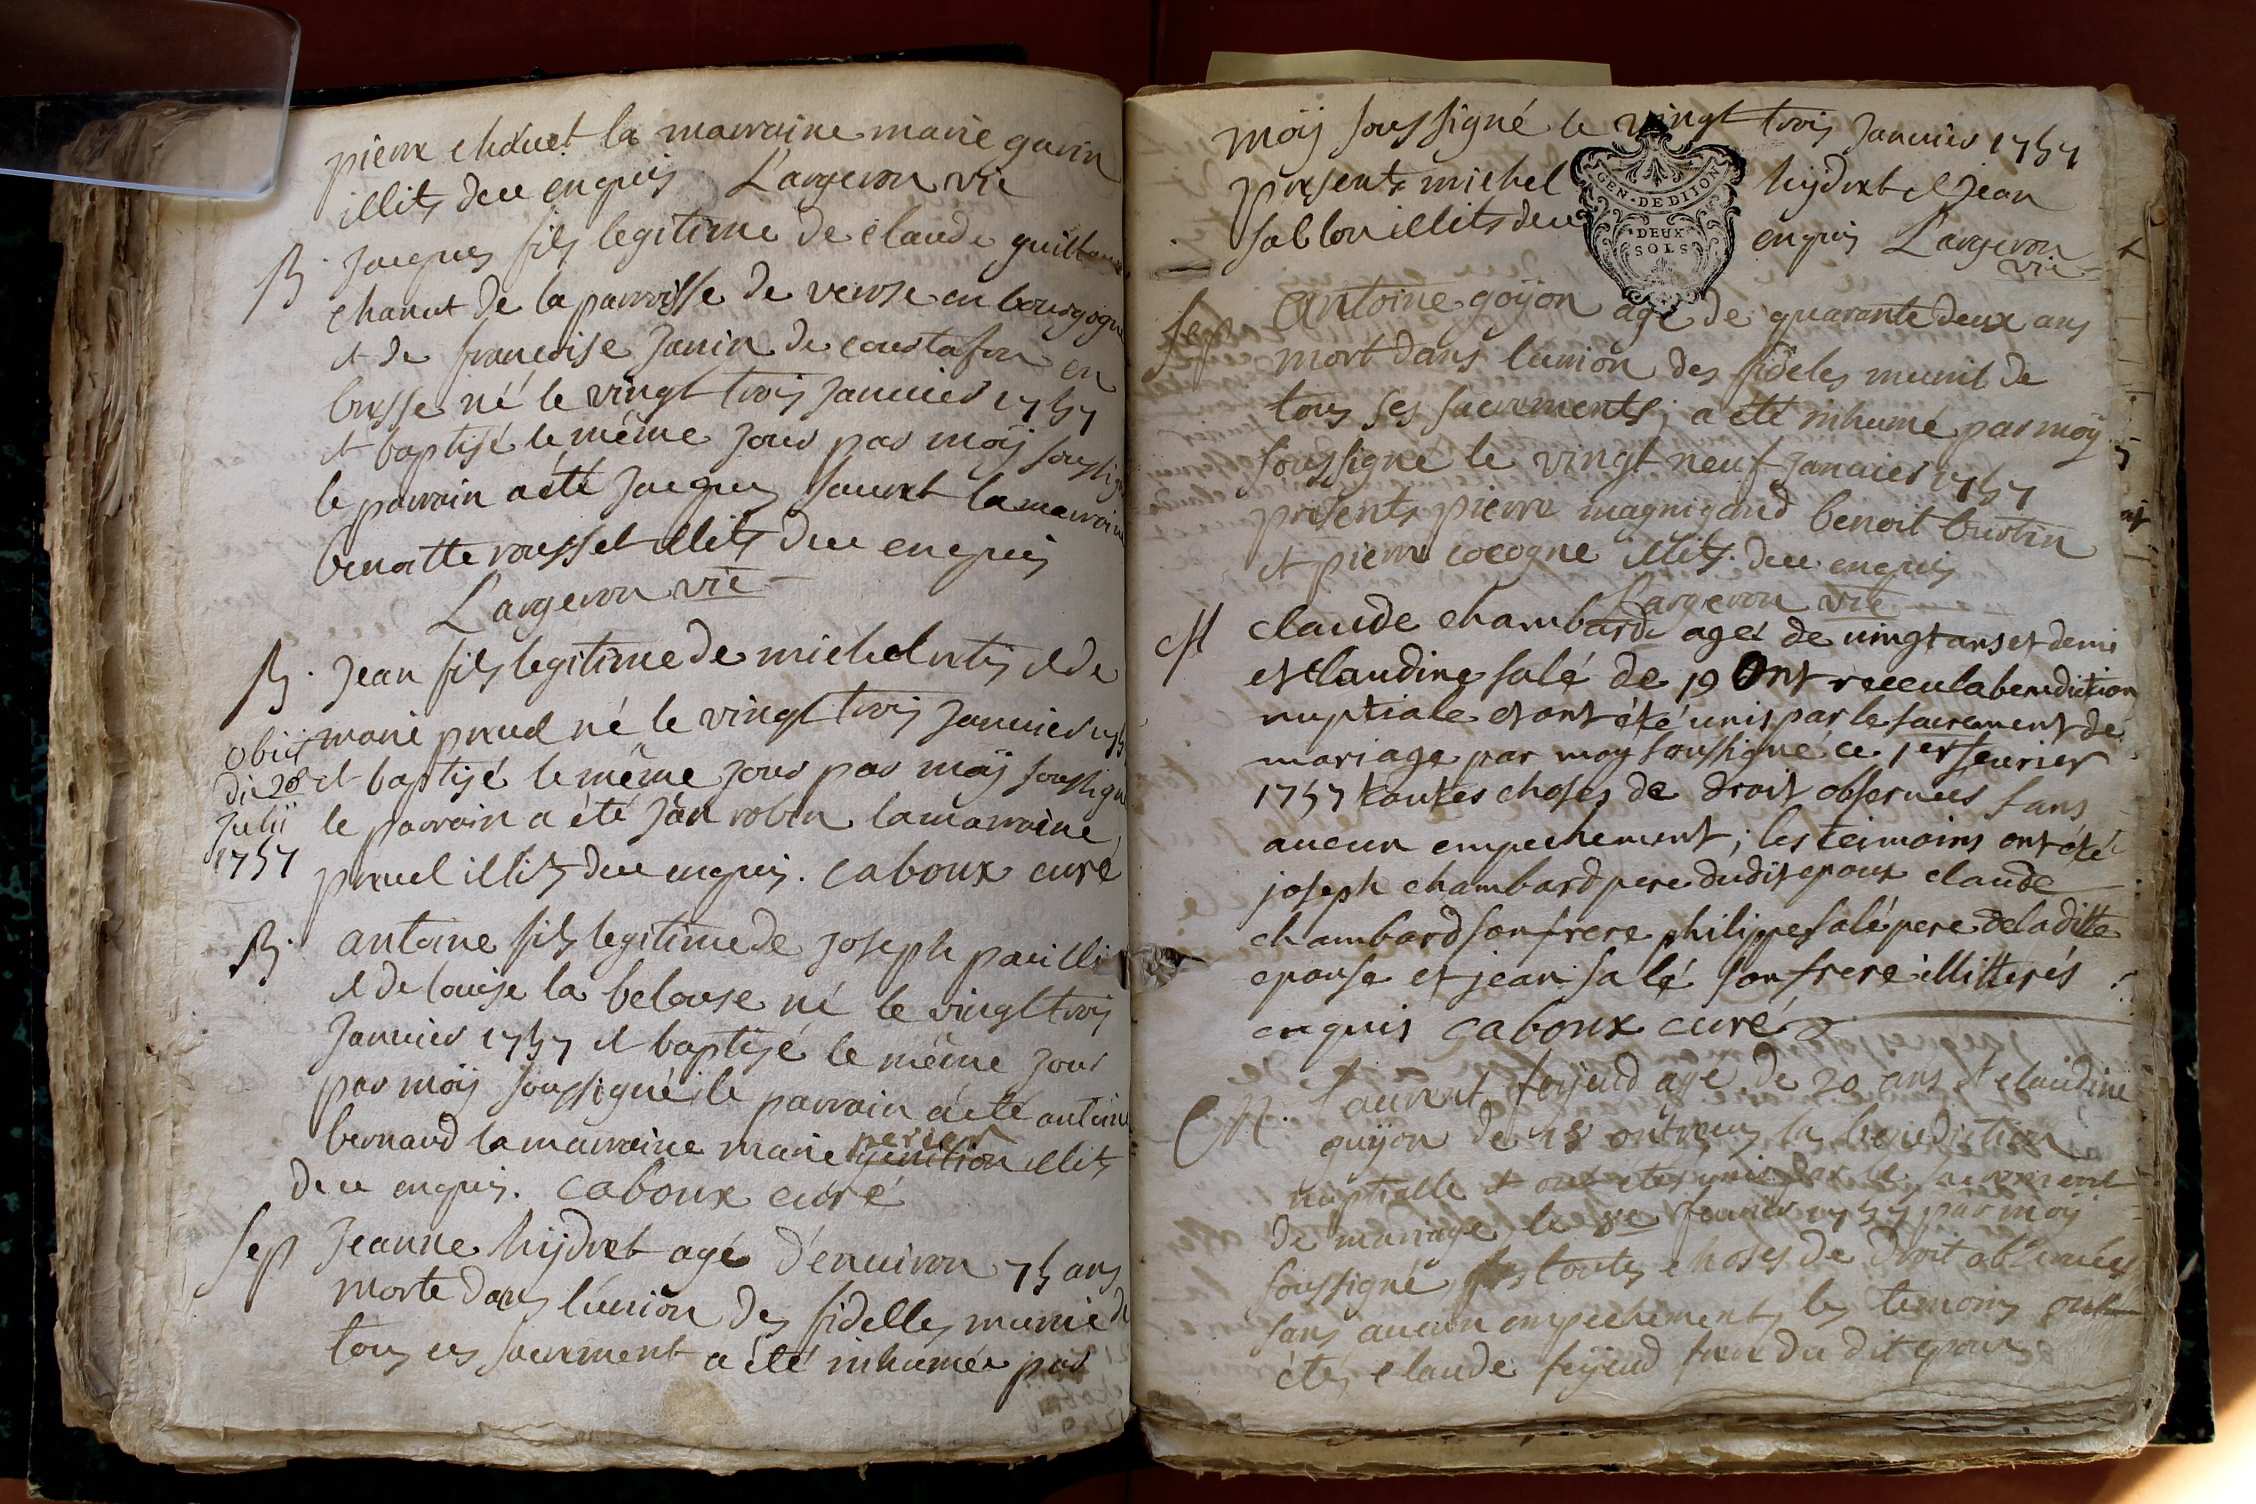 pierre chduet la marraine marie garin
illits deu enquis Largeron vic
B. Jacques fils legitime de claude guillaume
chanut de la parroisse de verose en bourgogne
et de francoise Janin de coustafon en
bresse né le vingt trois Janvier 1757
et baptisé le même jour par moÿ soussigné
le parrain a été Jacques sauret la marraine
benoitte rousset illits deu enquis
Largeron vic
B. Jean fils legitime de michel et de
marie prud né le vingt trois Janvier 1757
et baptisé le même jour par moÿ soussigné
le parrain a été Jean robin la marraine
pruel illits deu enquis. caboux curé
obiit
die 28
Julii
1757
B. antoine fils legitime de Joseph
et de louise la belouse né le vingt trois
Janvier 1757 et baptisé le même jour
par moÿ soussigné le parrain a été antoine
bernard la marraine marie perier illits
deu enquis. caboux curé
Sep Jeanne hÿdret agé d'enuiron 75 ans
morte dans l'union des fidelles munie de
tous ces sacrement a été inhumée par
moÿ soussigné le vingt trois Janvier 1757
presents michel hÿdret et Jean
sablon illits deu enquis Largeron
vic
GEN · DE DIJON
DEUX
SOLS
Sep antoine goÿon agé de quarante deux ans
mort dans lunion des fideles munit de
tous ses sacrements; a été inhumé par moÿ
soussigne le vingt neuf Janvier 1757
presents pierre magnigaud benoit burtin
et pierre cocogne illits. deu enquis
Largeron vic
M claude chambard agé de uingt ans et demi
et claudine salé de 19 Ont receu la benediction
nuptiale et ont été unis par le sacrement de
mariage par moy soussigné ce 1er feurier
1757 toutes choses de droit obseruees sans
aucun empechement; les teimoins ont été
joseph chambard pere dudit epoux claude
chambard son frere philippe salé pere de la ditte
epouse et jean salé son frere illitterés
enquis caboux curé
M. Laurent feÿeud agé de 20 ans et claudine
guÿon de 18 ont reçu la benediction
nuptialle et ont etes unis par le sacrement
de mariage le feurier 1757 par moÿ
soussigné toutes choses de droit obseruées
sans aucun empechement les temoins ont
étés claude feÿeud frere du dit epoux